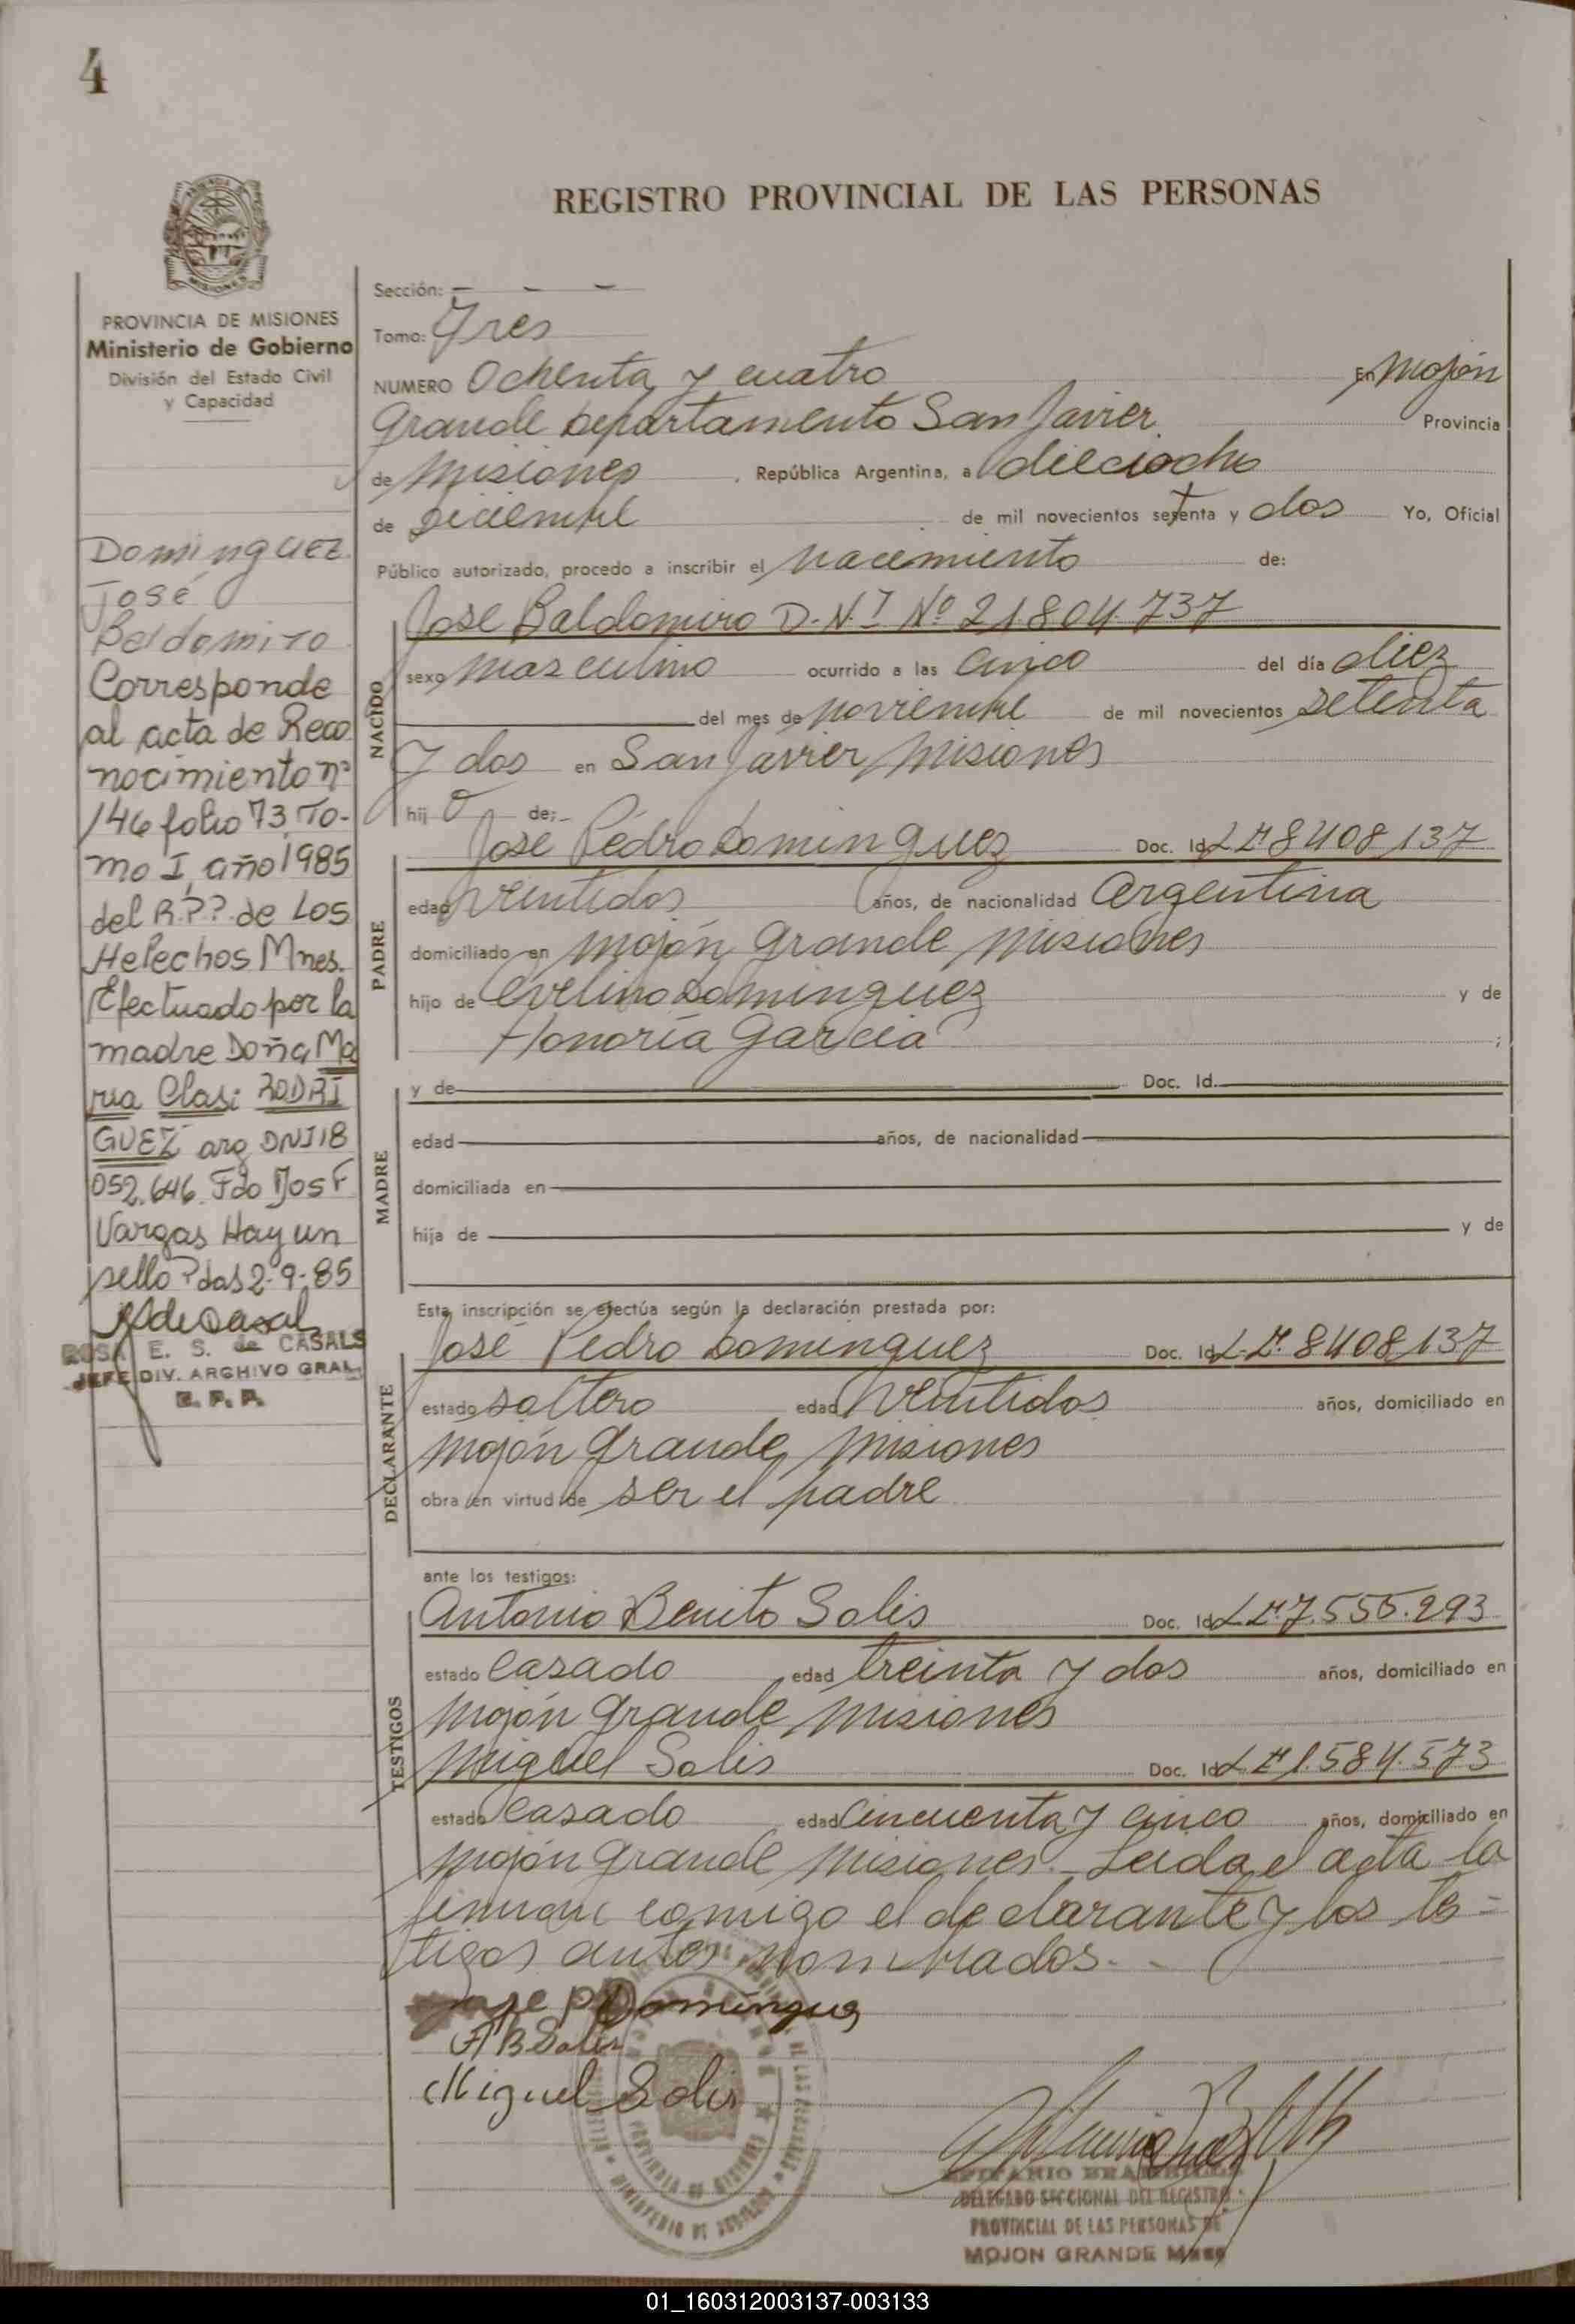 4
REGISTRO PROVINCIAL DE LAS PERSONAS
PROVINCIA DE MISIONES
Ministerio de Gobierno
División del Estado Civil
y Capacidad
Dominguez
José
Beldomiro
Corresponde
al acta de Reco
nocimiento nº
146 folio 73 To-
mo I, año 1985
del R.P.P. de Los
Helechos Mnes.
Efectuado por la
madre Doña Ma
ria Clasi RODRI
GUEZ arg DNI 18
052.646. Fdo Jos F
Vargas Hay un
sello Pdas 2-9-85
ROSA E. S. de CASALS
JEFE DIV. ARCHIVO GRAL.
R. P. P.
Sección: - - -
Tomo: Tres
NUMERO Ochenta y cuatro En Mojón
Grande Departamento San Javier Provincia
de Misiones, República Argentina, a dieciocho
de Diciembre de mil novecientos setenta y dos Yo, Oficial
Público autorizado, procedo a inscribir el nacimiento de:
NACIDO
José Baldomiro D.N.I Nº 21804.737
sexo masculino ocurrido a las cinco del día diez
del mes de noviembre de mil novecientos setenta
y dos en San Javier Misiones
hij o de;-
PADRE
José Pedro Dominguez Doc. Id. L E 8408137
edad veintidos años, de nacionalidad Argentina
domiciliado en Mojón Grande Misiones
hijo de Evelino Dominguez y de
Honoria Garcia ;
MADRE
y de Doc. Id.
edad años, de nacionalidad
domiciliada en
hija de y de
Esta inscripción se efectúa según la declaración prestada por:
DECLARANTE
José Pedro Dominguez Doc. Id. L.E. 8408137
estado soltero edad veintidos años, domiciliado en
Mojón Grande, Misiones
obra en virtud de ser el padre
ante los testigos:
TESTIGOS
Antonio Benito Solis Doc. Id. L E. 7.555.293
estado casado edad treinta y dos años, domiciliado en
Mojón Grande Misiones
Miguel Solis Doc. Id. L E 1.584.573
estado casado edad cincuenta y cinco años, domiciliado en
Mojón Grande Misiones.- Leida el acta la
firman comigo el declarante y los tes=
tigos antes nombrados. -
Jose P Dominguez
A B Solis
Miguel Solis
DELEGADO SECCIONAL DEL REGISTRO
PROVINCIAL DE LAS PERSONAS DE
MOJON GRANDE Mnes
01_160312003137-003133